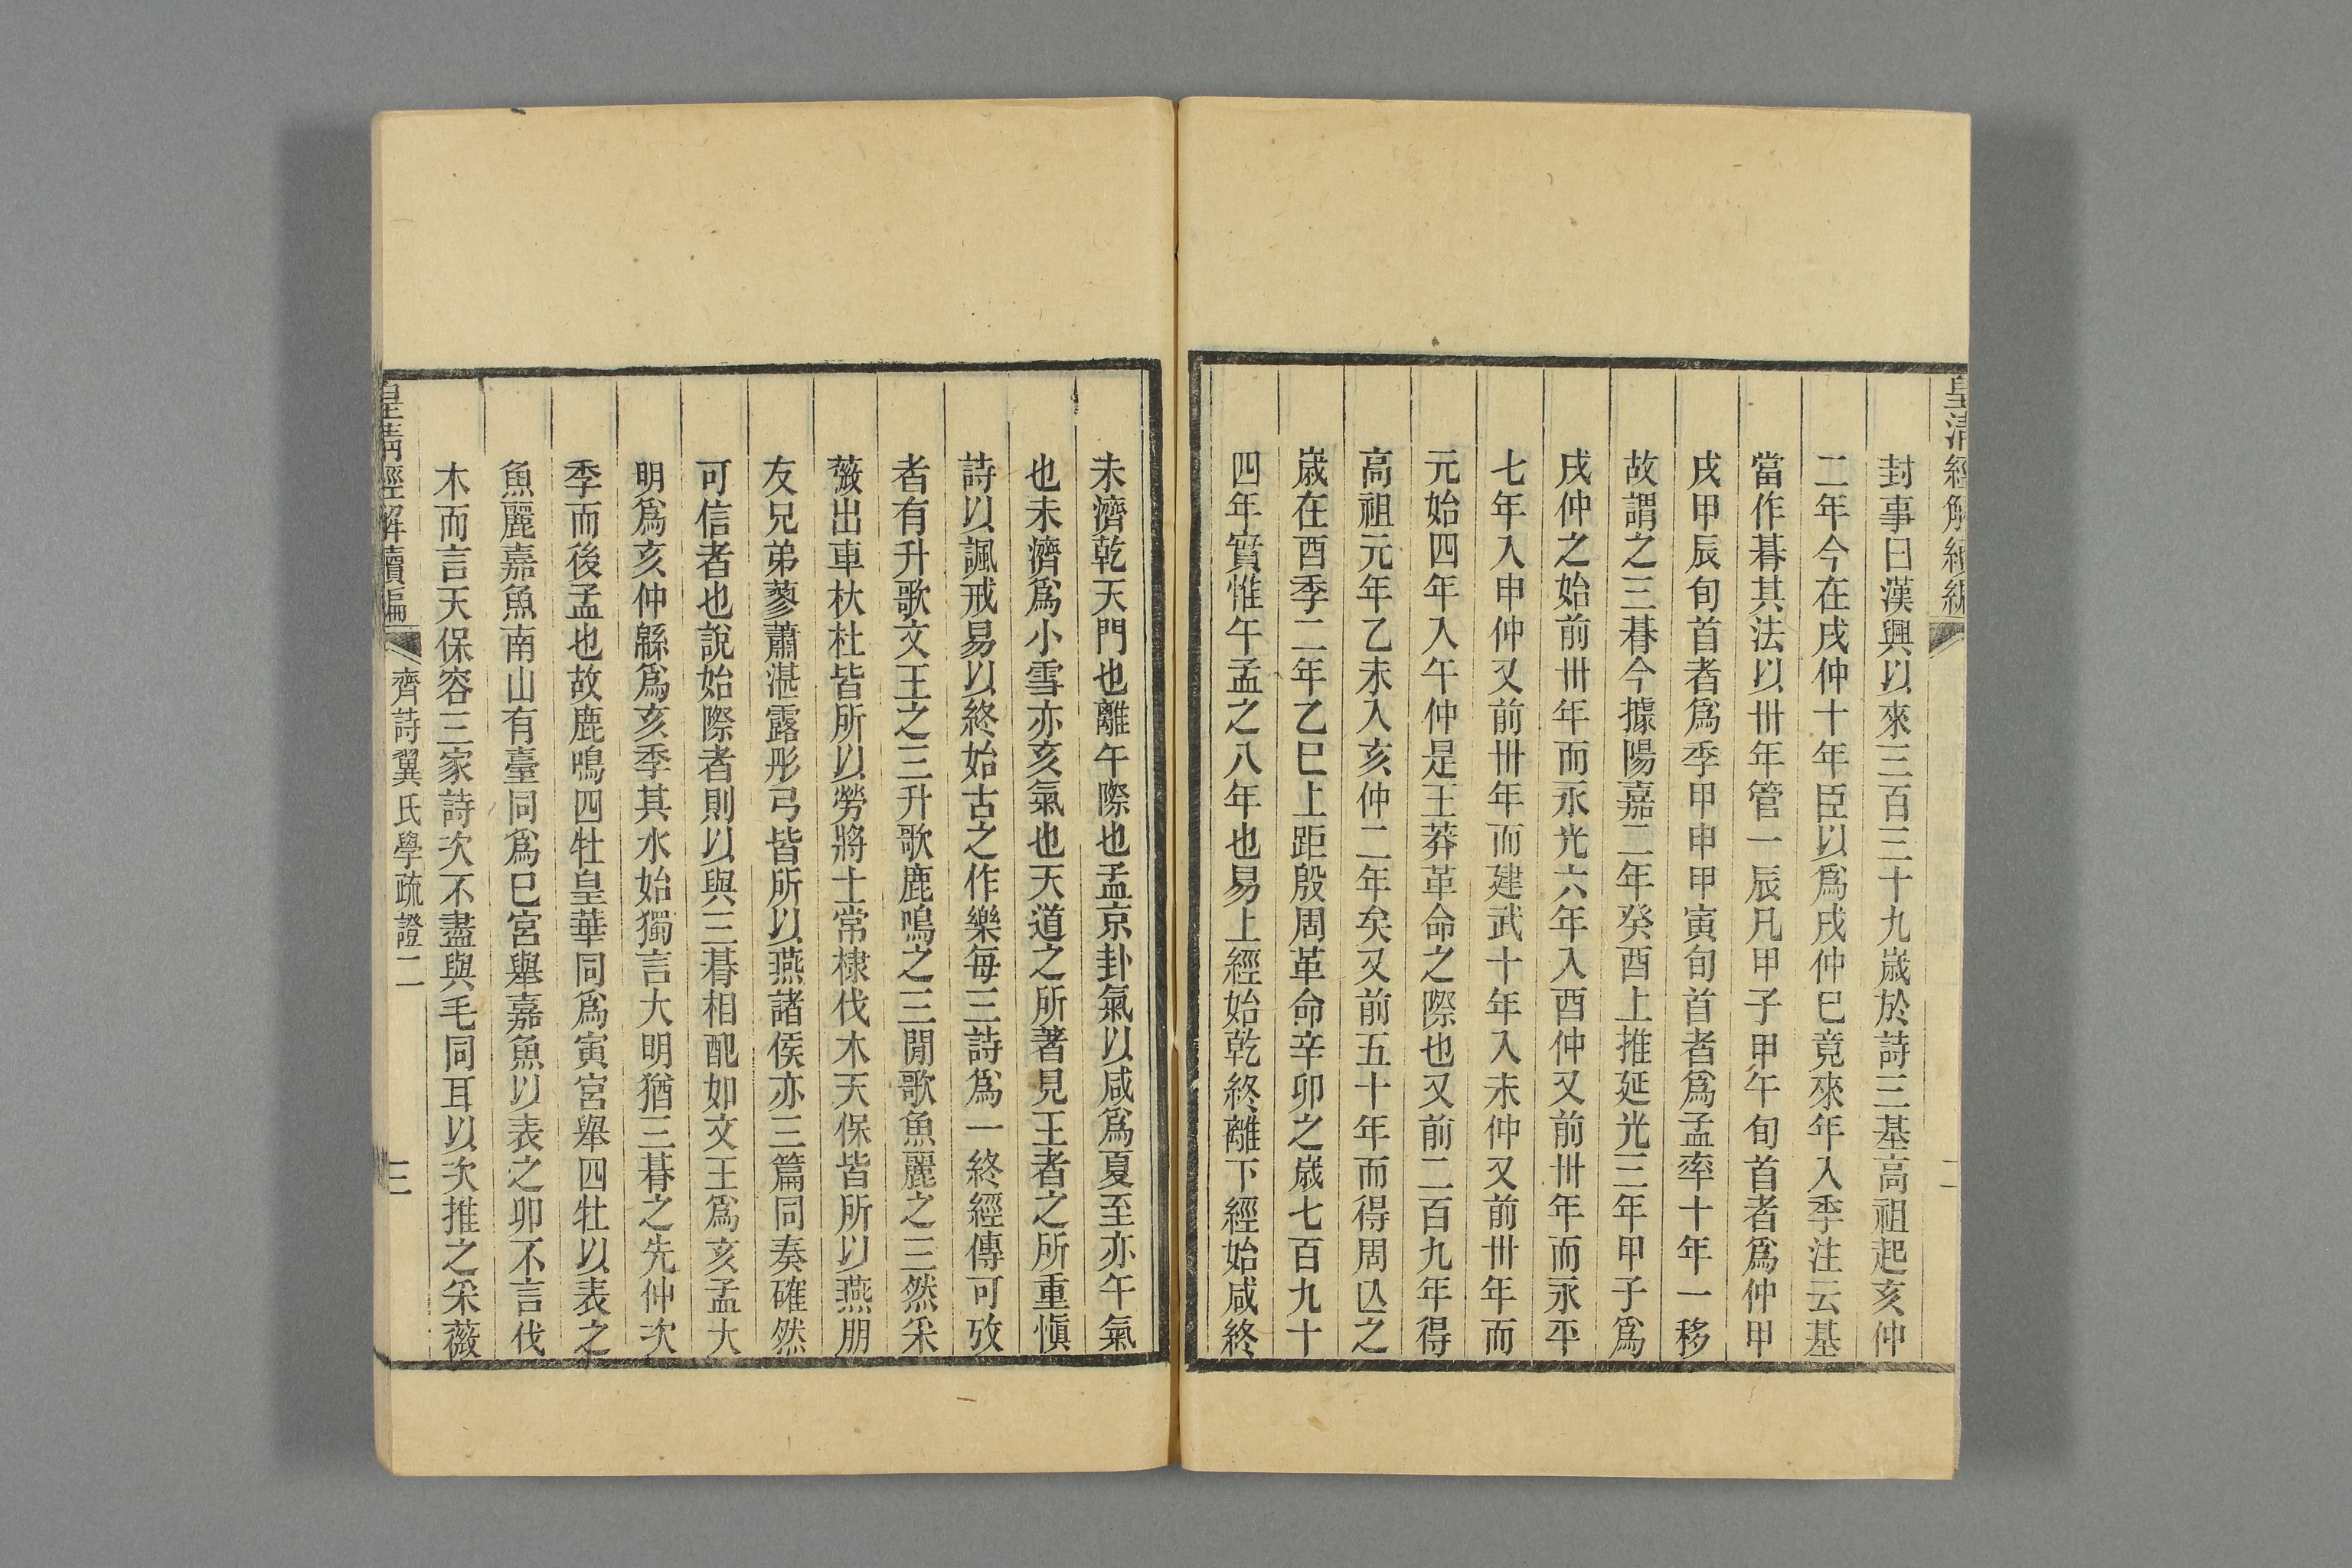 皇清經解續編
二
封事曰漢興以來三百三十九歲於詩三基高祖起亥仲
二年今在戌仲十年臣以爲戌仲已竟來年入季注云基
當作朞其法以卅年管一辰凡甲子甲午旬首者爲仲甲
戌甲辰旬首者爲季甲申甲寅旬首者爲孟率十年一移
故謂之三朞今據陽嘉二年癸酉上推延光三年甲子爲
戌仲之始前卅年而永光六年入酉仲又前卅年而永平
七年入申仲又前卅年而建武十年入未仲又前卅年而
元始四年入午仲是王莽革命之際也又前二百九年得
高祖元年乙未入亥仲二年矣又前五十年而得周亾之
歲在酉季二年乙巳上距殷周革命辛卯之歲七百九十
四年實惟午孟之八年也易上經始乾終離下經始咸終
未濟乾天門也離午際也孟京卦氣以咸爲夏至亦午氣
也未濟爲小雪亦亥氣也天道之所著見王者之所重愼
詩以諷戒易以終始古之作樂每三詩爲一終經傳可攷
者有升歌文王之三升歌鹿鳴之三閒歌魚麗之三然采
薇出車杕杜皆所以勞將士常棣伐木天保皆所以燕朋
友兄弟蓼蕭湛露彤弓皆所以燕諸侯亦三篇同奏確然
可信者也說始際者則以與三朞相配如文王爲亥孟大
明爲亥仲緜爲亥季其水始獨言大明猶三朞之先仲次
季而後孟也故鹿鳴四牡皇華同爲寅宮舉四牡以表之
魚麗嘉魚南山有臺同爲巳宮舉嘉魚以表之卯不言伐
木而言天保容三家詩次不盡與毛同耳以次推之采薇
皇淸經解續編
齊詩翼氏學疏證二
三